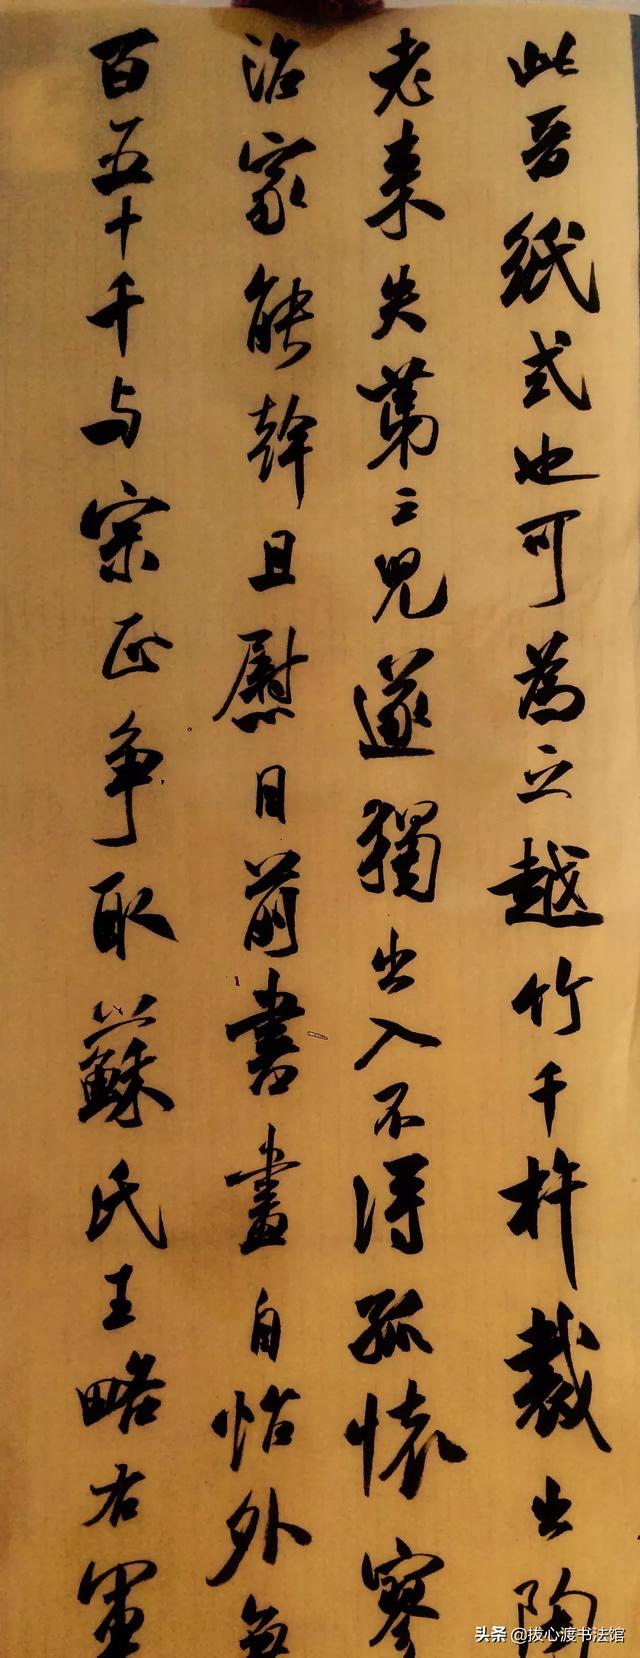 此晋紙式也可為之越竹千杵裁出陶
老来失第三兒遂獨出入不得孤懷寥
治家能幹且慰目前書畫自怡外無
百五十千与宗正争取蘇氏王略右軍
头条 @拔心渡书法馆